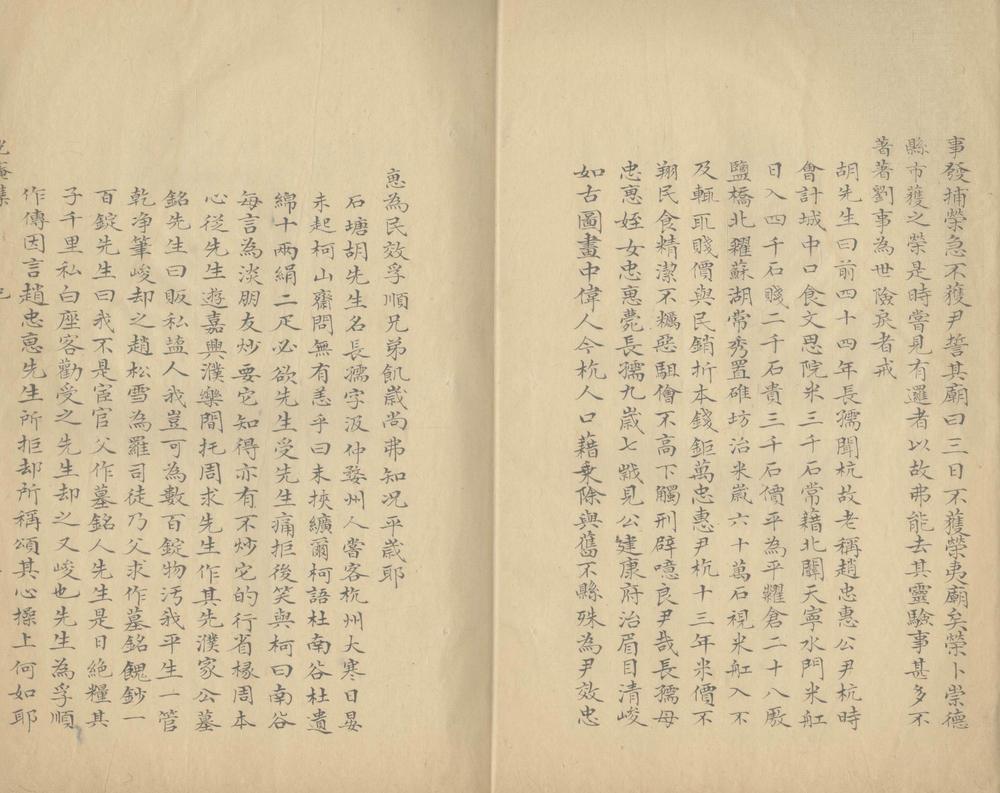 事發捕榮急不獲尹誓其廟曰三日不獲榮夷廟矣榮卜崇德
縣市獲之榮是時嘗見有邏者以故弗能去其靈驗事甚多不
著著劉事為世險戾者戒
胡先生曰前四十四年長孺聞杭故老稱趙忠惠公尹杭時
會計城中口食文思院米三千石常藉北關天寧水門米舡
日入四千石賤二千石貴三千石價平為平糴倉二十八厫
鹽橋北糴蘇湖常秀置碓坊治米歲六十萬石視米舡入不
及輒取賤價與民銷折本錢鉅萬忠惠尹杭十三年米價不
翔民食精潔不糲惡駔儈不高下觸刑辟噫良尹哉長孺母
忠惠姪女忠惠薨長孺九歲七歲見公建康府治眉目清峻
如古圖畫中偉人今杭人口藉乘除與舊不縣殊為尹效忠
惠為民效孚順兄弟飢歲尚弗知况平歲耶
石塘胡先生名長孺字汲仲婺州人嘗客杭州大寒日晏
未起柯山齋問無有恙乎曰未挾纊爾柯語杜南谷杜遺
綿十兩絹二疋必欲先生受先生痛拒後笑與柯曰南谷
每言為淡朋友炒要它知得亦有不炒它的行省椽周本
心從先生遊嘉興濮樂閒托周求先生作其先濮家公墓
銘先生曰販私盐人我豈可為數百錠物汚我平生一管
乾净筆峻却之趙松雪為羅司徒乃父求作墓銘餽鈔一
百錠先生曰我不是宦官父作墓銘人先生是日絶糧其
子千里私白座客勸受之先生却之又峻也先生為孚順
作傳因言趙忠惠先生所拒却所稱頌其心操上何如耶